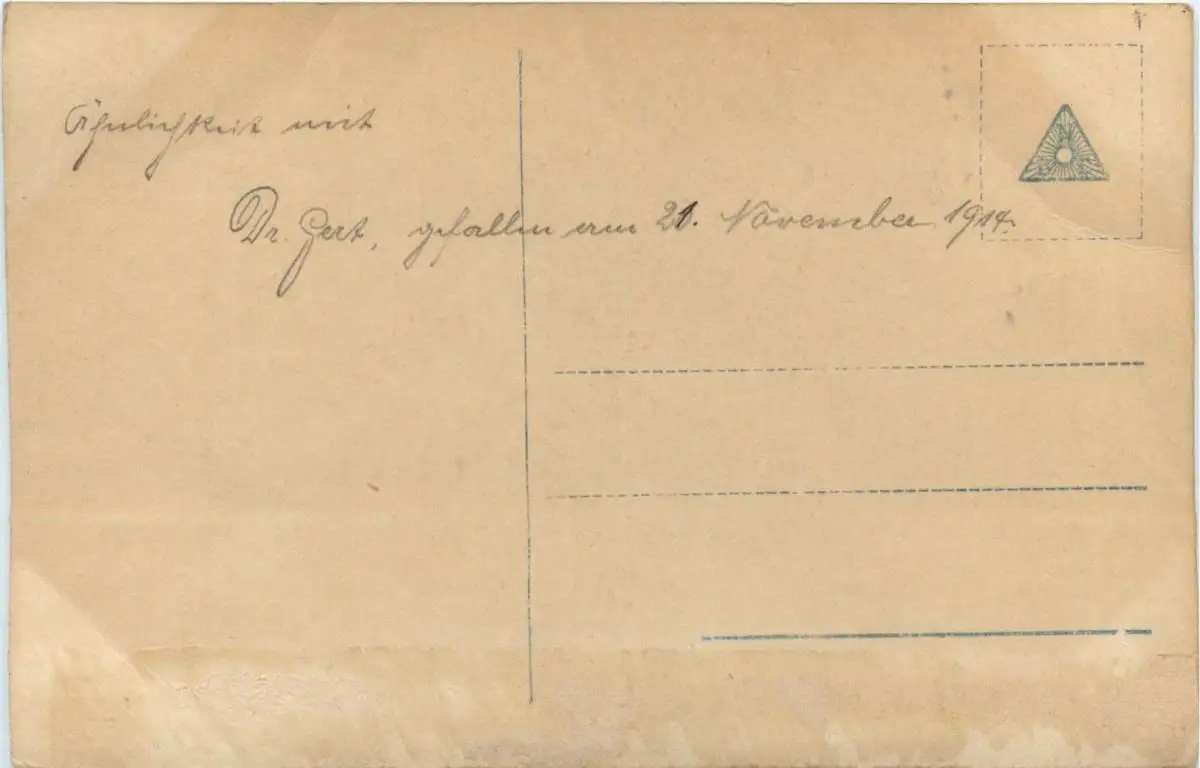 Ähnlichkeit mit
Dr. Gert, gefallen am 21. November 1914.